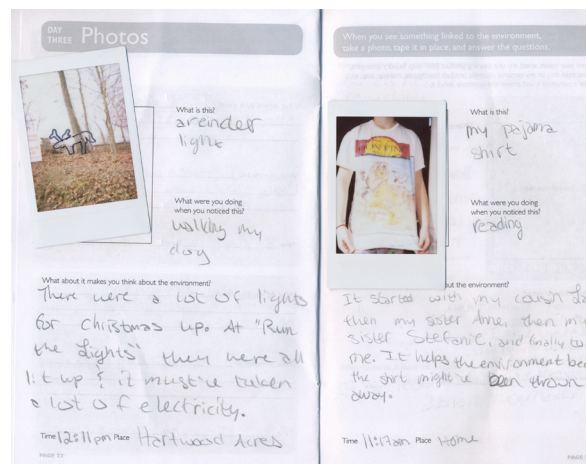 DAY
THREE Photos
What is this?
a reinder
light
What were you doing
when you noticed this?
walking my
dog
What about it makes you think about the environment?
There were a lot of lights
for christmas up. At "Run
the Lights" they were all
lit up & it must've taken
a lot of electricity.
Time 12:11pm Place Hartwood Acres
When you see something linked to the environment,
take a photo, tape it in place, and answer the questions.
What is this?
my pajama
shirt
What were you doing
when you noticed this?
reading
out the environment?
It started with my cousin
then my sister Anne, then my
sister Stefanie, and finally to
me. It helps the environment bec
the shirt might've been thrown
away.
Time 11:17am Place Home
PAGE